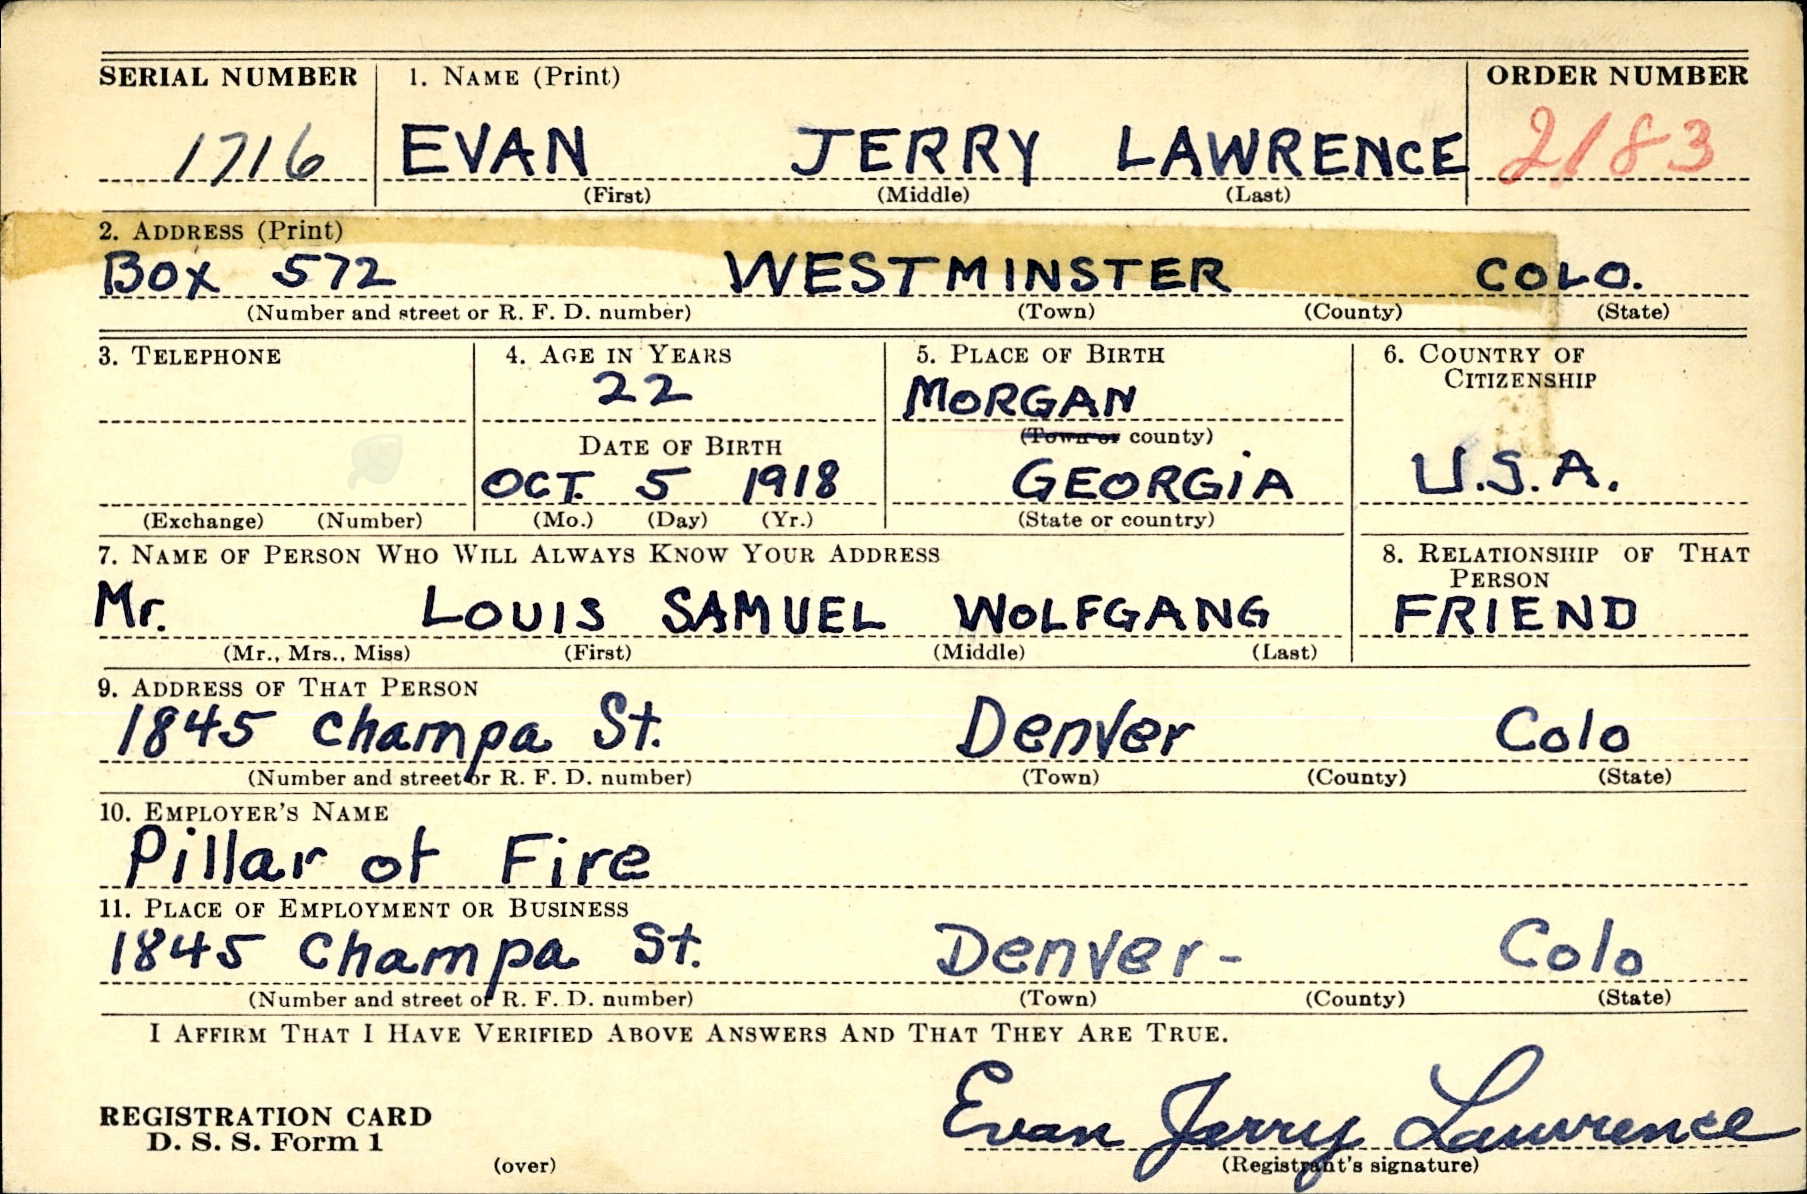 SERIAL NUMBER 1. NAME (Print) ORDER NUMBER
1716 EVAN JERRY LAWRENCE 2183
(First) (Middle) (Last)
2. ADDRESS (Print)
BOX 572 WESTMINSTER COLO.
(Number and street or R. F. D. number) (Town) (County) (State)
3. TELEPHONE 4. AGE IN YEARS 5. PLACE OF BIRTH 6. COUNTRY OF
CITIZENSHIP
22 MORGAN
DATE OF BIRTH (Town or county)
OCT. 5 1918 GEORGIA U.S.A.
(Exchange) (Number) (Mo.) (Day) (Yr.) (State or country)
7. NAME OF PERSON WHO WILL ALWAYS KNOW YOUR ADDRESS 8. RELATIONSHIP OF THAT
PERSON
Mr. LOUIS SAMUEL WOLFGANG FRIEND
(Mr., Mrs., Miss) (First) (Middle) (Last)
9. ADDRESS OF THAT PERSON
1845 Champa St. Denver Colo
(Number and street or R. F. D. number) (Town) (County) (State)
10. EMPLOYER'S NAME
Pillar of Fire
11. PLACE OF EMPLOYMENT OR BUSINESS
1845 Champa St. Denver- Colo
(Number and street or R. F. D. number) (Town) (County) (State)
I AFFIRM THAT I HAVE VERIFIED ABOVE ANSWERS AND THAT THEY ARE TRUE.
REGISTRATION CARD Evan Jerry Lawrence
D. S. S. Form 1
(over) (Registrant's signature)